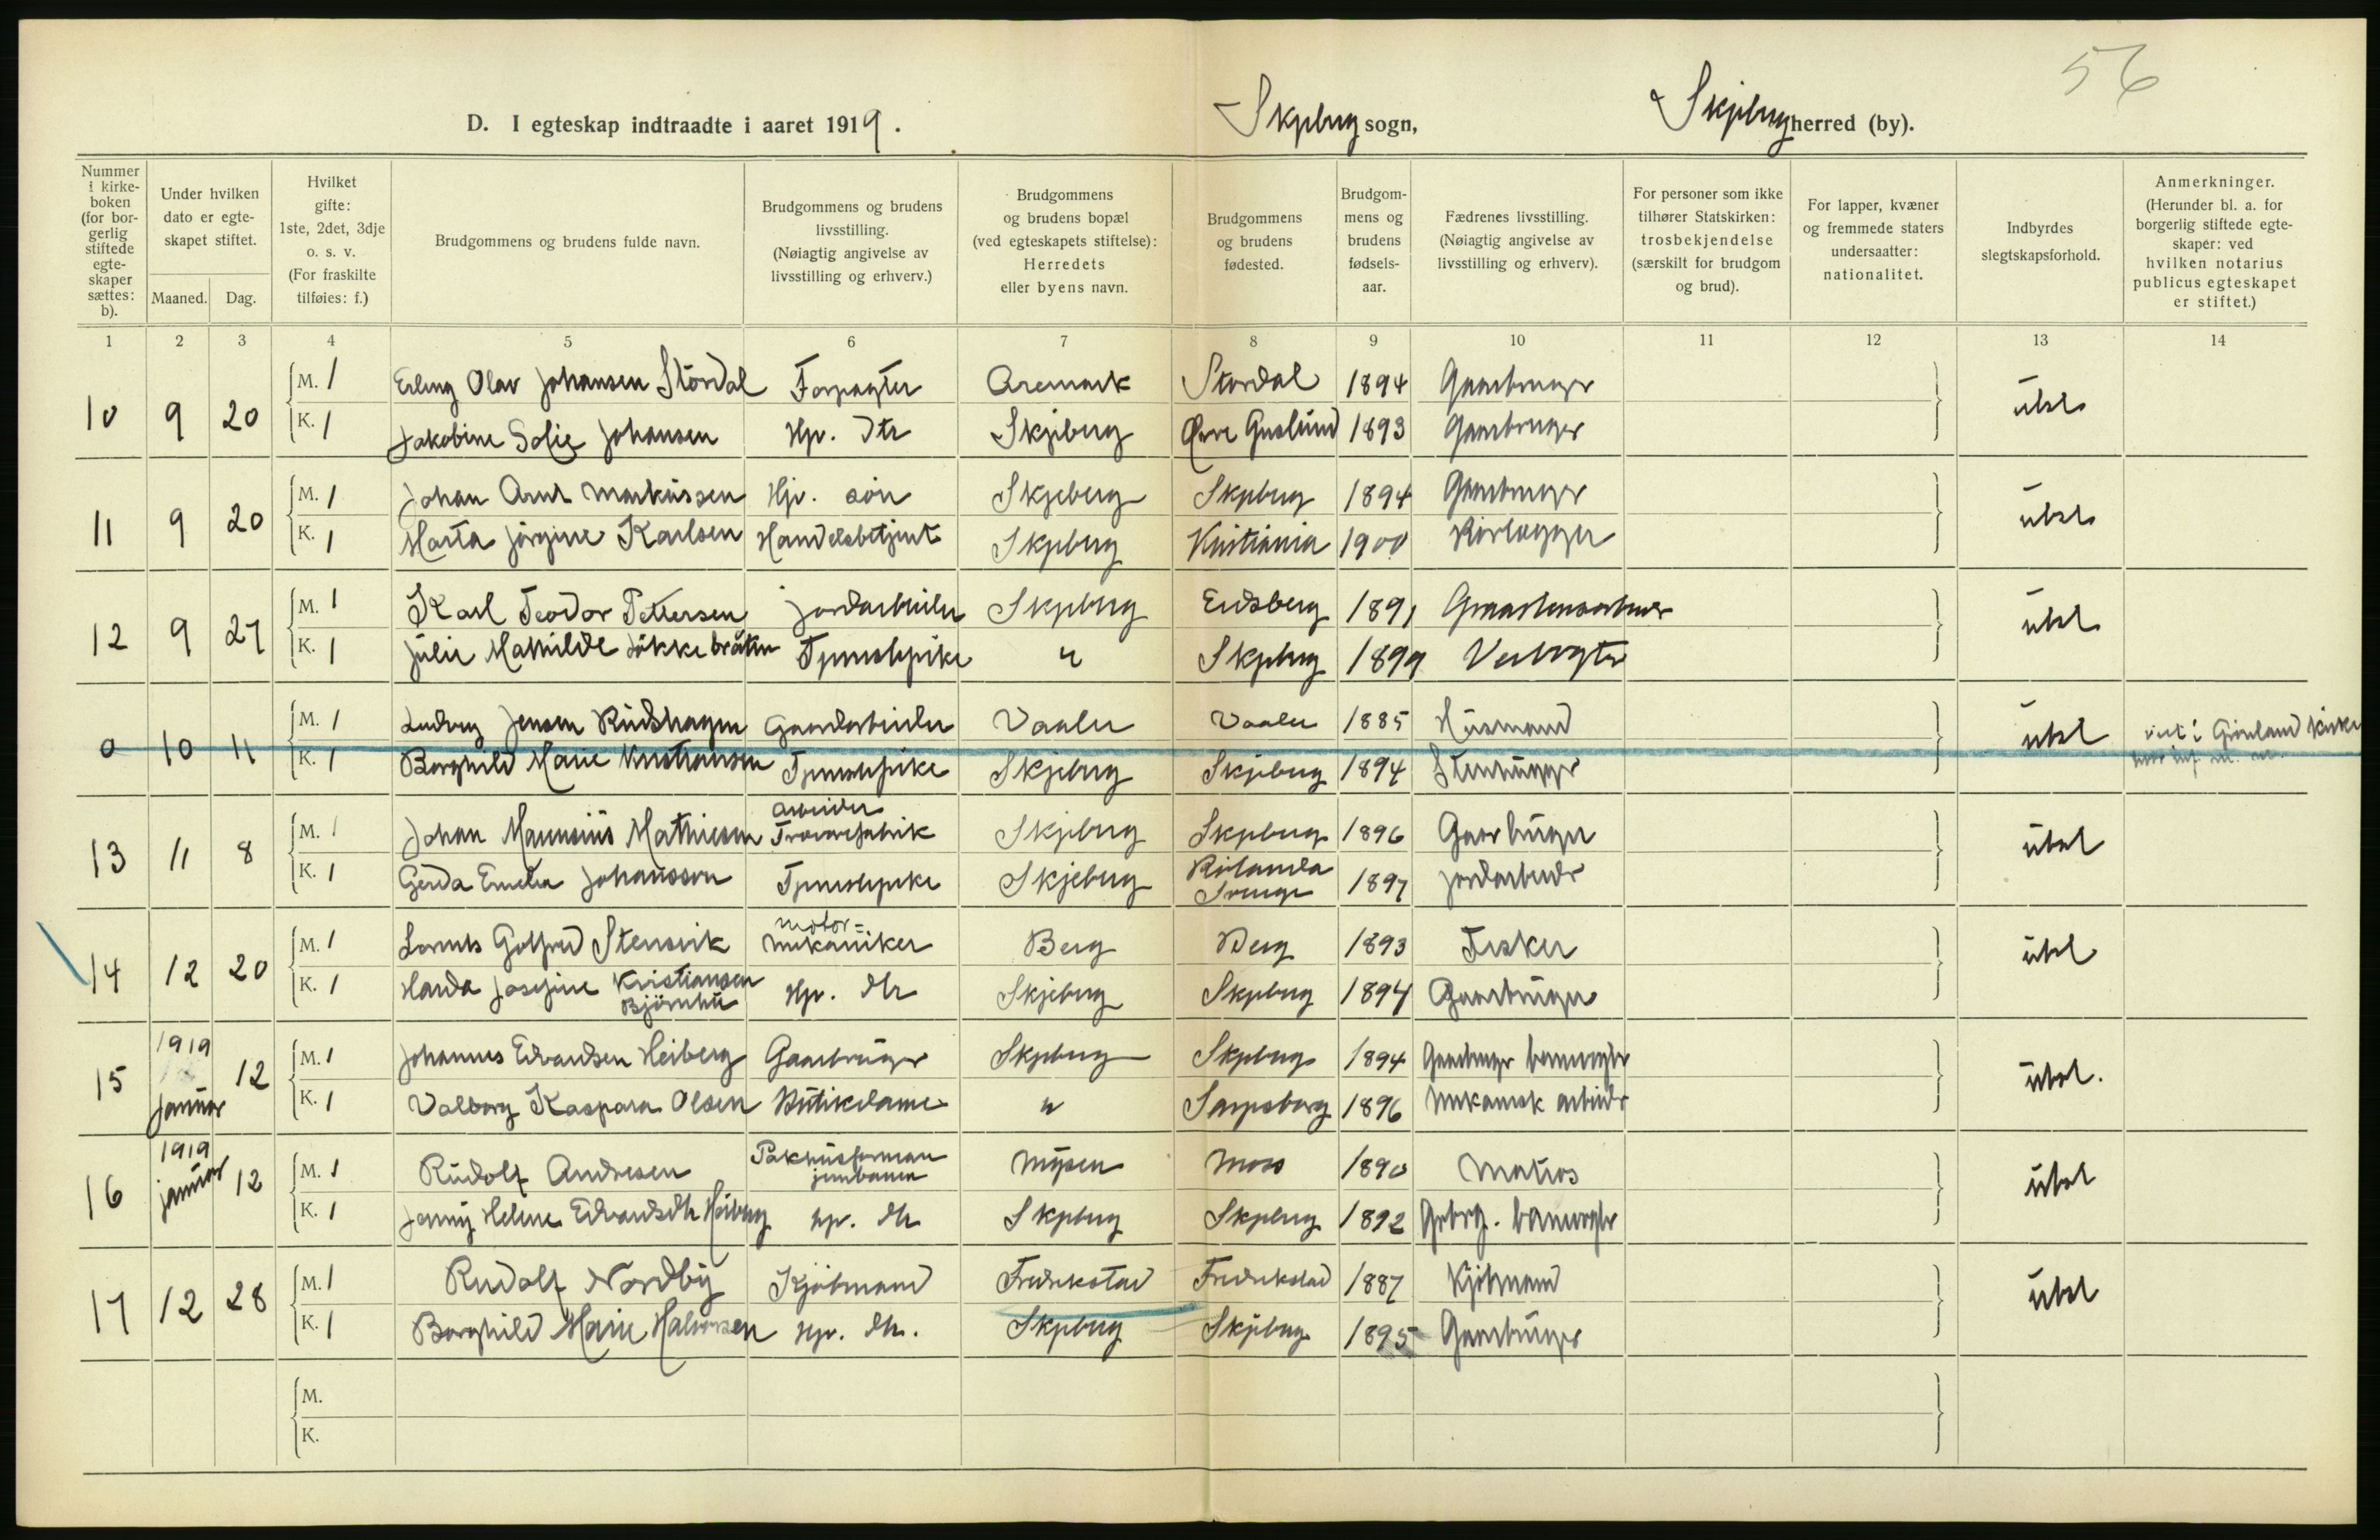 56
D. I egteskap indtraadte i aaret 1919. Skjeberg sogn, Skjeberg herred (by).
Nummer i kirkeboken (for borgerlig stiftede egteskaper sættes: b).
Under hvilken dato er egteskapet stiftet.
Maaned. Dag.
Hvilket gifte: 1ste, 2det, 3dje o. s. v. (For fraskilte tilføies: f.)
Brudgommens og brudens fulde navn.
Brudgommens og brudens livsstilling. (Nøiagtig angivelse av livsstilling og erhverv.)
Brudgommens og brudens bopæl (ved egteskapets stiftelse): Herredets eller byens navn.
Brudgommens og brudens fødested.
Brudgommens og brudens fødselsaar.
Fædrenes livsstilling. (Nøiagtig angivelse av livsstilling og erhverv).
For personer som ikke tilhører Statskirken: trosbekjendelse (særskilt for brudgom og brud).
For lapper, kvæner og fremmede staters undersaatter: nationalitet.
Indbyrdes slegtskapsforhold.
Anmerkninger. (Herunder bl. a. for borgerlig stiftede egteskaper: ved hvilken notarius publicus egteskapet er stiftet.)
1 2 3 4 5 6 7 8 9 10 11 12 13 14
10 9 20 M. 1 Erling Olav Johansen Stordal Forpagter Aremark Stordal 1894 Gaardbruger ubsl
K. 1 Jakobine Sofie Johansen Hjv. dtr Skjeberg Øvre Guslund 1893 Gaardbruger
11 9 20 M. 1 Johan Arnt Markussen Hjv. søn Skjeberg Skjeberg 1894 Gaardbruger ubsl
K. 1 Marta Jørgine Karlsen Handelsbetjent Skjeberg Kristiania 1900 Rørlægger
12 9 27 M. 1 Karl Teodor Pettersen Jordarbeider Skjeberg Eidsberg 1891 ubsl
K. 1 Julie Mathilde Løkkebråten Tjenestepike " Skjeberg 1899
0 10 11 M. 1 Ludvig Jensen Rudshagen Gaardarbeider Vaaler Vaaler 1885 Husmand ubsl viet i Grønland kirke
K. 1 Borghild Marie Kristiansen Tjenestepike Skjeberg Skjeberg 1894 Stenhugger
13 11 8 M. 1 Johan Mathiesen arbeider Trævarefabrik Skjeberg Skjeberg 1896 Gaardbruger ubsl
K. 1 Gerda Emelia Johansson Tjenestepike Skjeberg Rölanda Sverige 1897 Jordarbeider
14 12 20 M. 1 Lorents Gotfred Stensvik motor= mekaniker Berg Berg 1893 Fisker ubsl
K. 1 Harda Josefine Kristiansen Hjv. dtr Skjeberg Skjeberg 1894 Gaardbruger
15 1919 januar 12 M. 1 Johannes Edvardsen Heiberg Gaardbruger Skjeberg Skjeberg 1894 Gaardbruger banevogter ubsl.
K. 1 Valborg Kaspara Olsen Butikdame " Sarpsborg 1896 Mekanisk arbeider
16 1919 januar 12 M. 1 Rudolf Andresen Pakhusformann jernbanen Mysen Moss 1890 Matros ubsl
K. 1 Jenny Helene Edvardsdtr Heiberg hjv. dtr Skjeberg Skjeberg 1892 Grbrg. banevogter
17 12 28 M. 1 Rudolf Nordby Kjøbmand Fredrikstad Fredrikstad 1887 Kjøbmand ubsl
K. 1 Borghild Marie Halvorsen Hjv. dtr. Skjeberg Skjeberg 1895 Gaardbruger
M.
K.